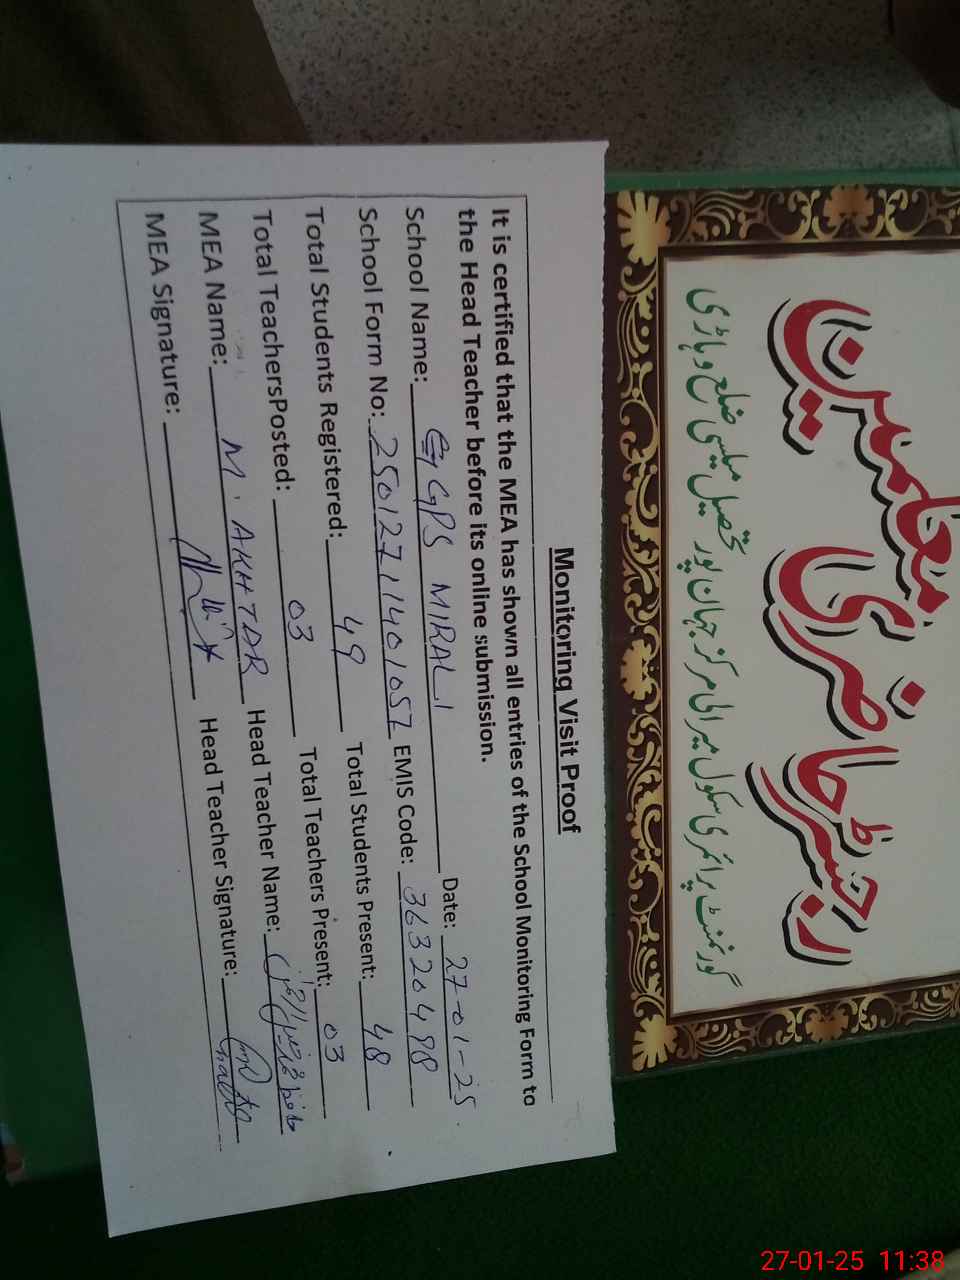 Monitoring Visit Proof
It is certified that the MEA has shown all entries of the School Monitoring Form to
the Head Teacher before its online submission.
School Name: GGPS MIRALI Date: 27-01-25
School Form No: 25012711401052 EMIS Code: 36320498
Total Students Registered: 49 Total Students Present: 48
Total TeachersPosted: 03 Total Teachers Present: 03
MEA Name: M. AKHTAR Head Teacher Name:
MEA Signature: Head Teacher Signature:
رجسٹر حاضری معلمین
گورنمنٹ پرائمری سکول میرالی مرکز جہان پور تحصیل میلسی ضلع وہاڑی
27-01-25 11:38